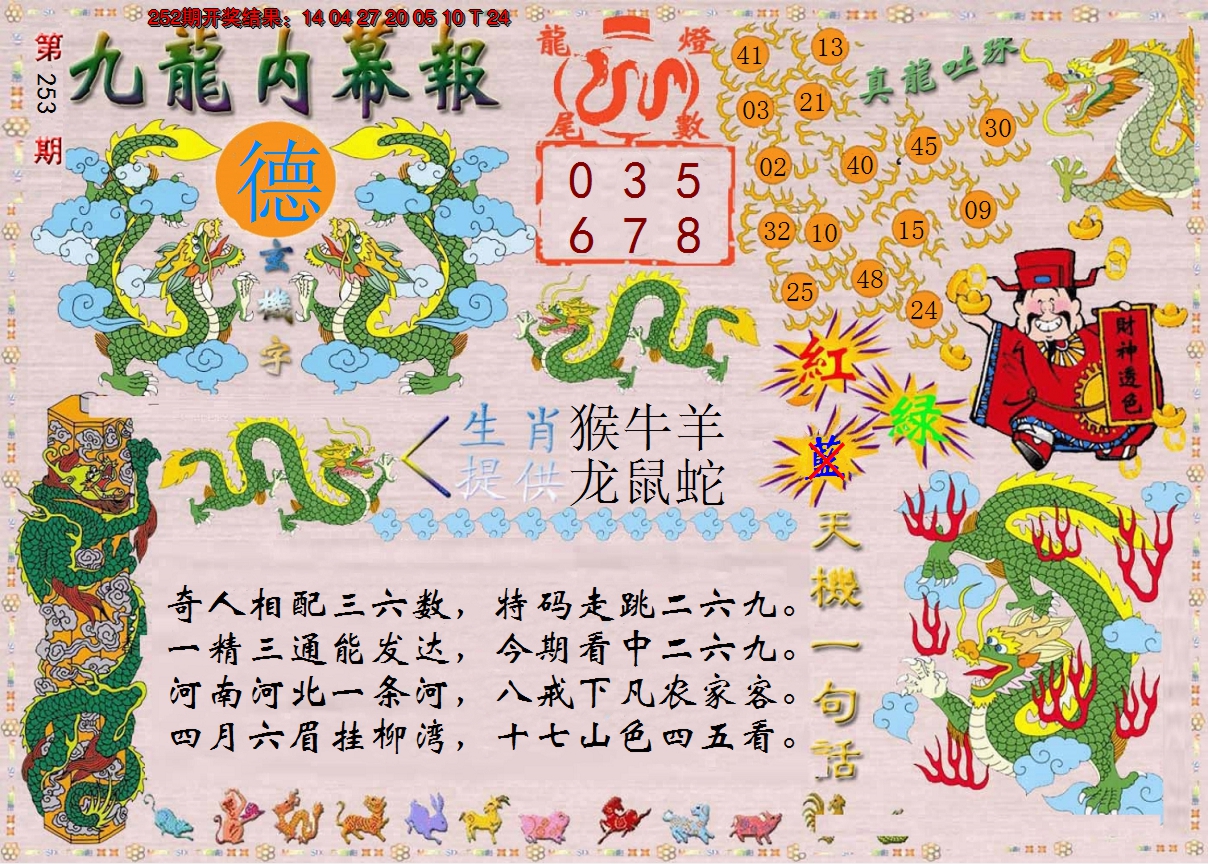 252期开奖结果：14 04 27 20 05 10 T 24
第253期
九龍内幕報
德
玄機字
龍燈
尾數
0 3 5
6 7 8
真龍吐珠
41
13
03
21
02
40
45
30
32
10
15
09
25
48
24
財神透色
紅
綠
藍
生肖
提供
猴牛羊
龙鼠蛇
奇人相配三六数，特码走跳二六九。
一精三通能发达，今期看中二六九。
河南河北一条河，八戒下凡农家客。
四月六眉挂柳湾，十七山色四五看。
天機一句話